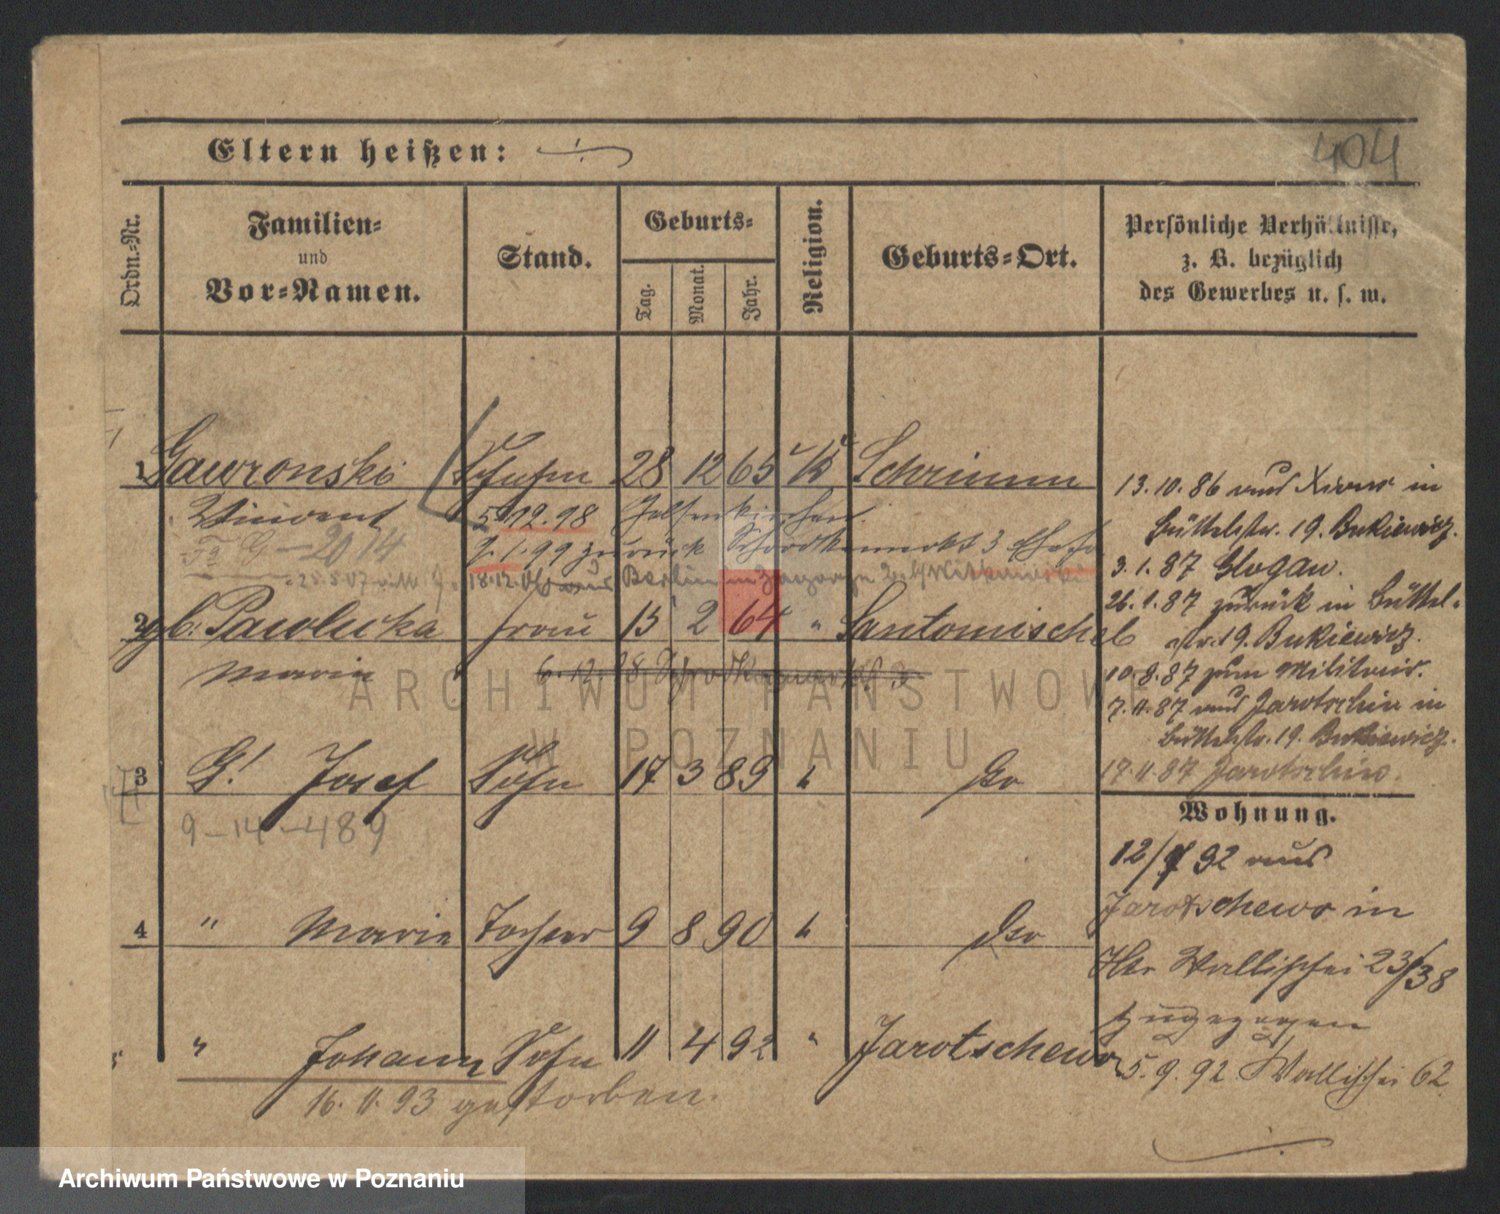 404
Eltern heißen:
Ordn.-Nr.
Familien-
und
Vor-Namen.
Stand.
Geburts-
Tag.
Monat.
Jahr.
Religion.
Geburts-Ort.
Persönliche Verhältnisse,
z. B. bezüglich
des Gewerbes u. s. w.
1 Gawronski 28 12 65 Schrimm
Vincent 5.12.98 Gelsenkirchen.
7.1.99 zurück 3
18.12. aus Berlin in
2 gb. Pawlicka Frau 15 2 64 " Santomischel
Marie 6.12.98 3
3 G! Josef Sohn 17 3 89 " do
9-14-489
4 " Marie Tochter 9 8 90 " do
5 " Johann Sohn 11 4 92 " Jarotschewo
16. 11. 93 gestorben.
13.10.86 aus Xions in
Büttelstr. 19. Bukiewicz.
3.1.87 Glogau.
26.1.87 zurück in Büttel-
str. 19. Bukiewicz.
10.9.87 zum Militair.
7.11.87 aus Jarotschin in
Büttelstr. 19. Bukiewicz.
17.11.87 Jarotschin.
Wohnung.
12/9 92 aus
Jarotschewo in
Wallischei 23/38
zugezogen
5.9.92 Wallischei 62
ARCHIWUM PAŃSTWOWE
W POZNANIU
Archiwum Państwowe w Poznaniu